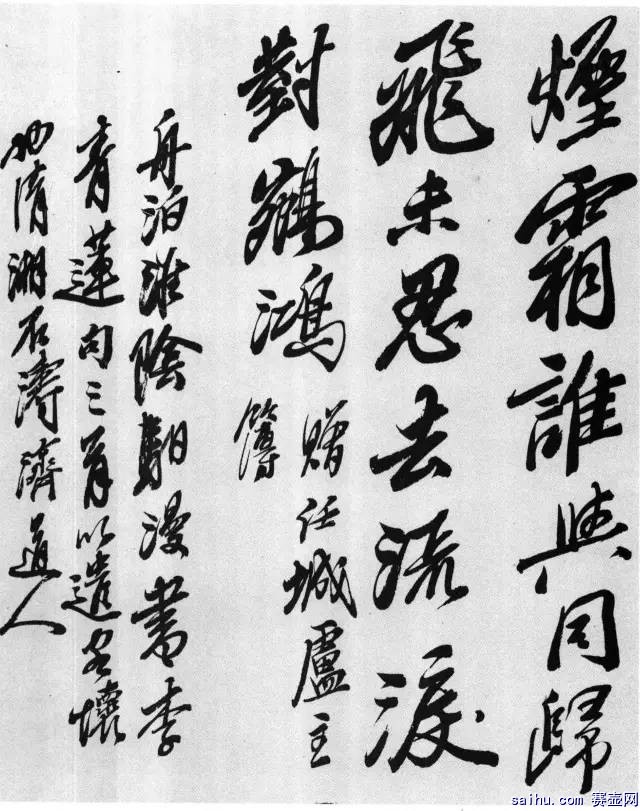 煙霜誰與同歸
飛未忍去流淚
對鵷鴻
贈任城盧主
簿
舟泊淮陰朝漫書李
青蓮句三首以遣客懷
也清湘石濤濟道人
saihu.com 赛壶网